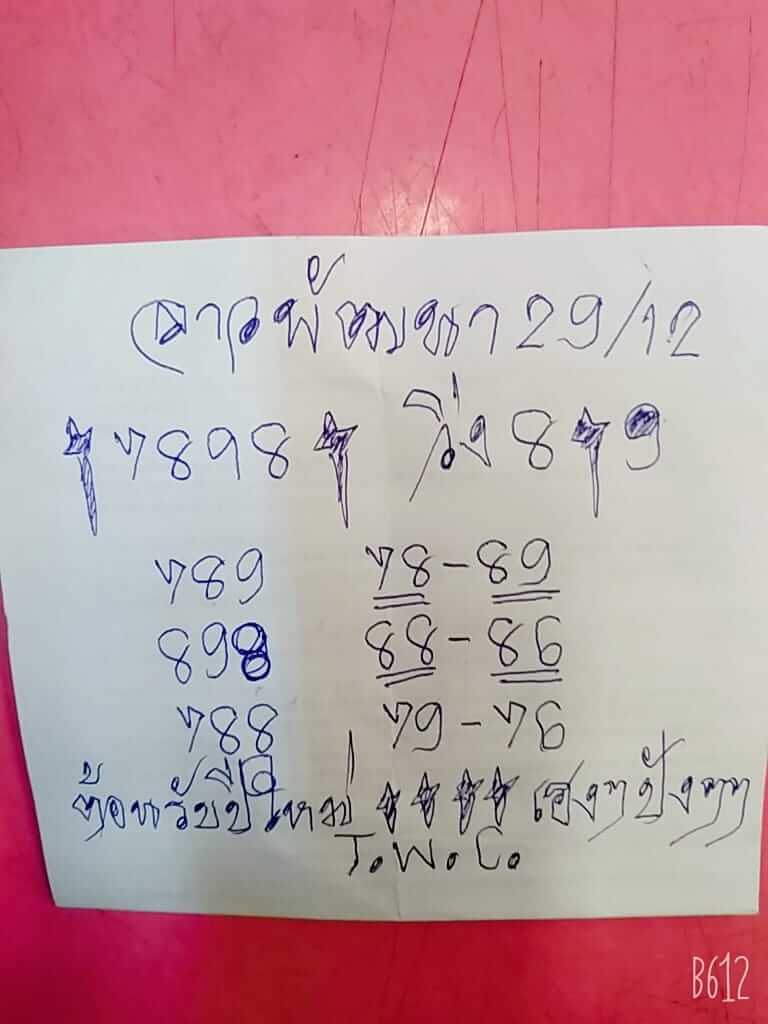 ลาวพัฒนา 29/12
7898 วิ่ง 8 9
789 78-89
898 88-86
788 79-76
ต้อนรับปีใหม่ เฮงๆปังๆๆ
T.W.C.
B612